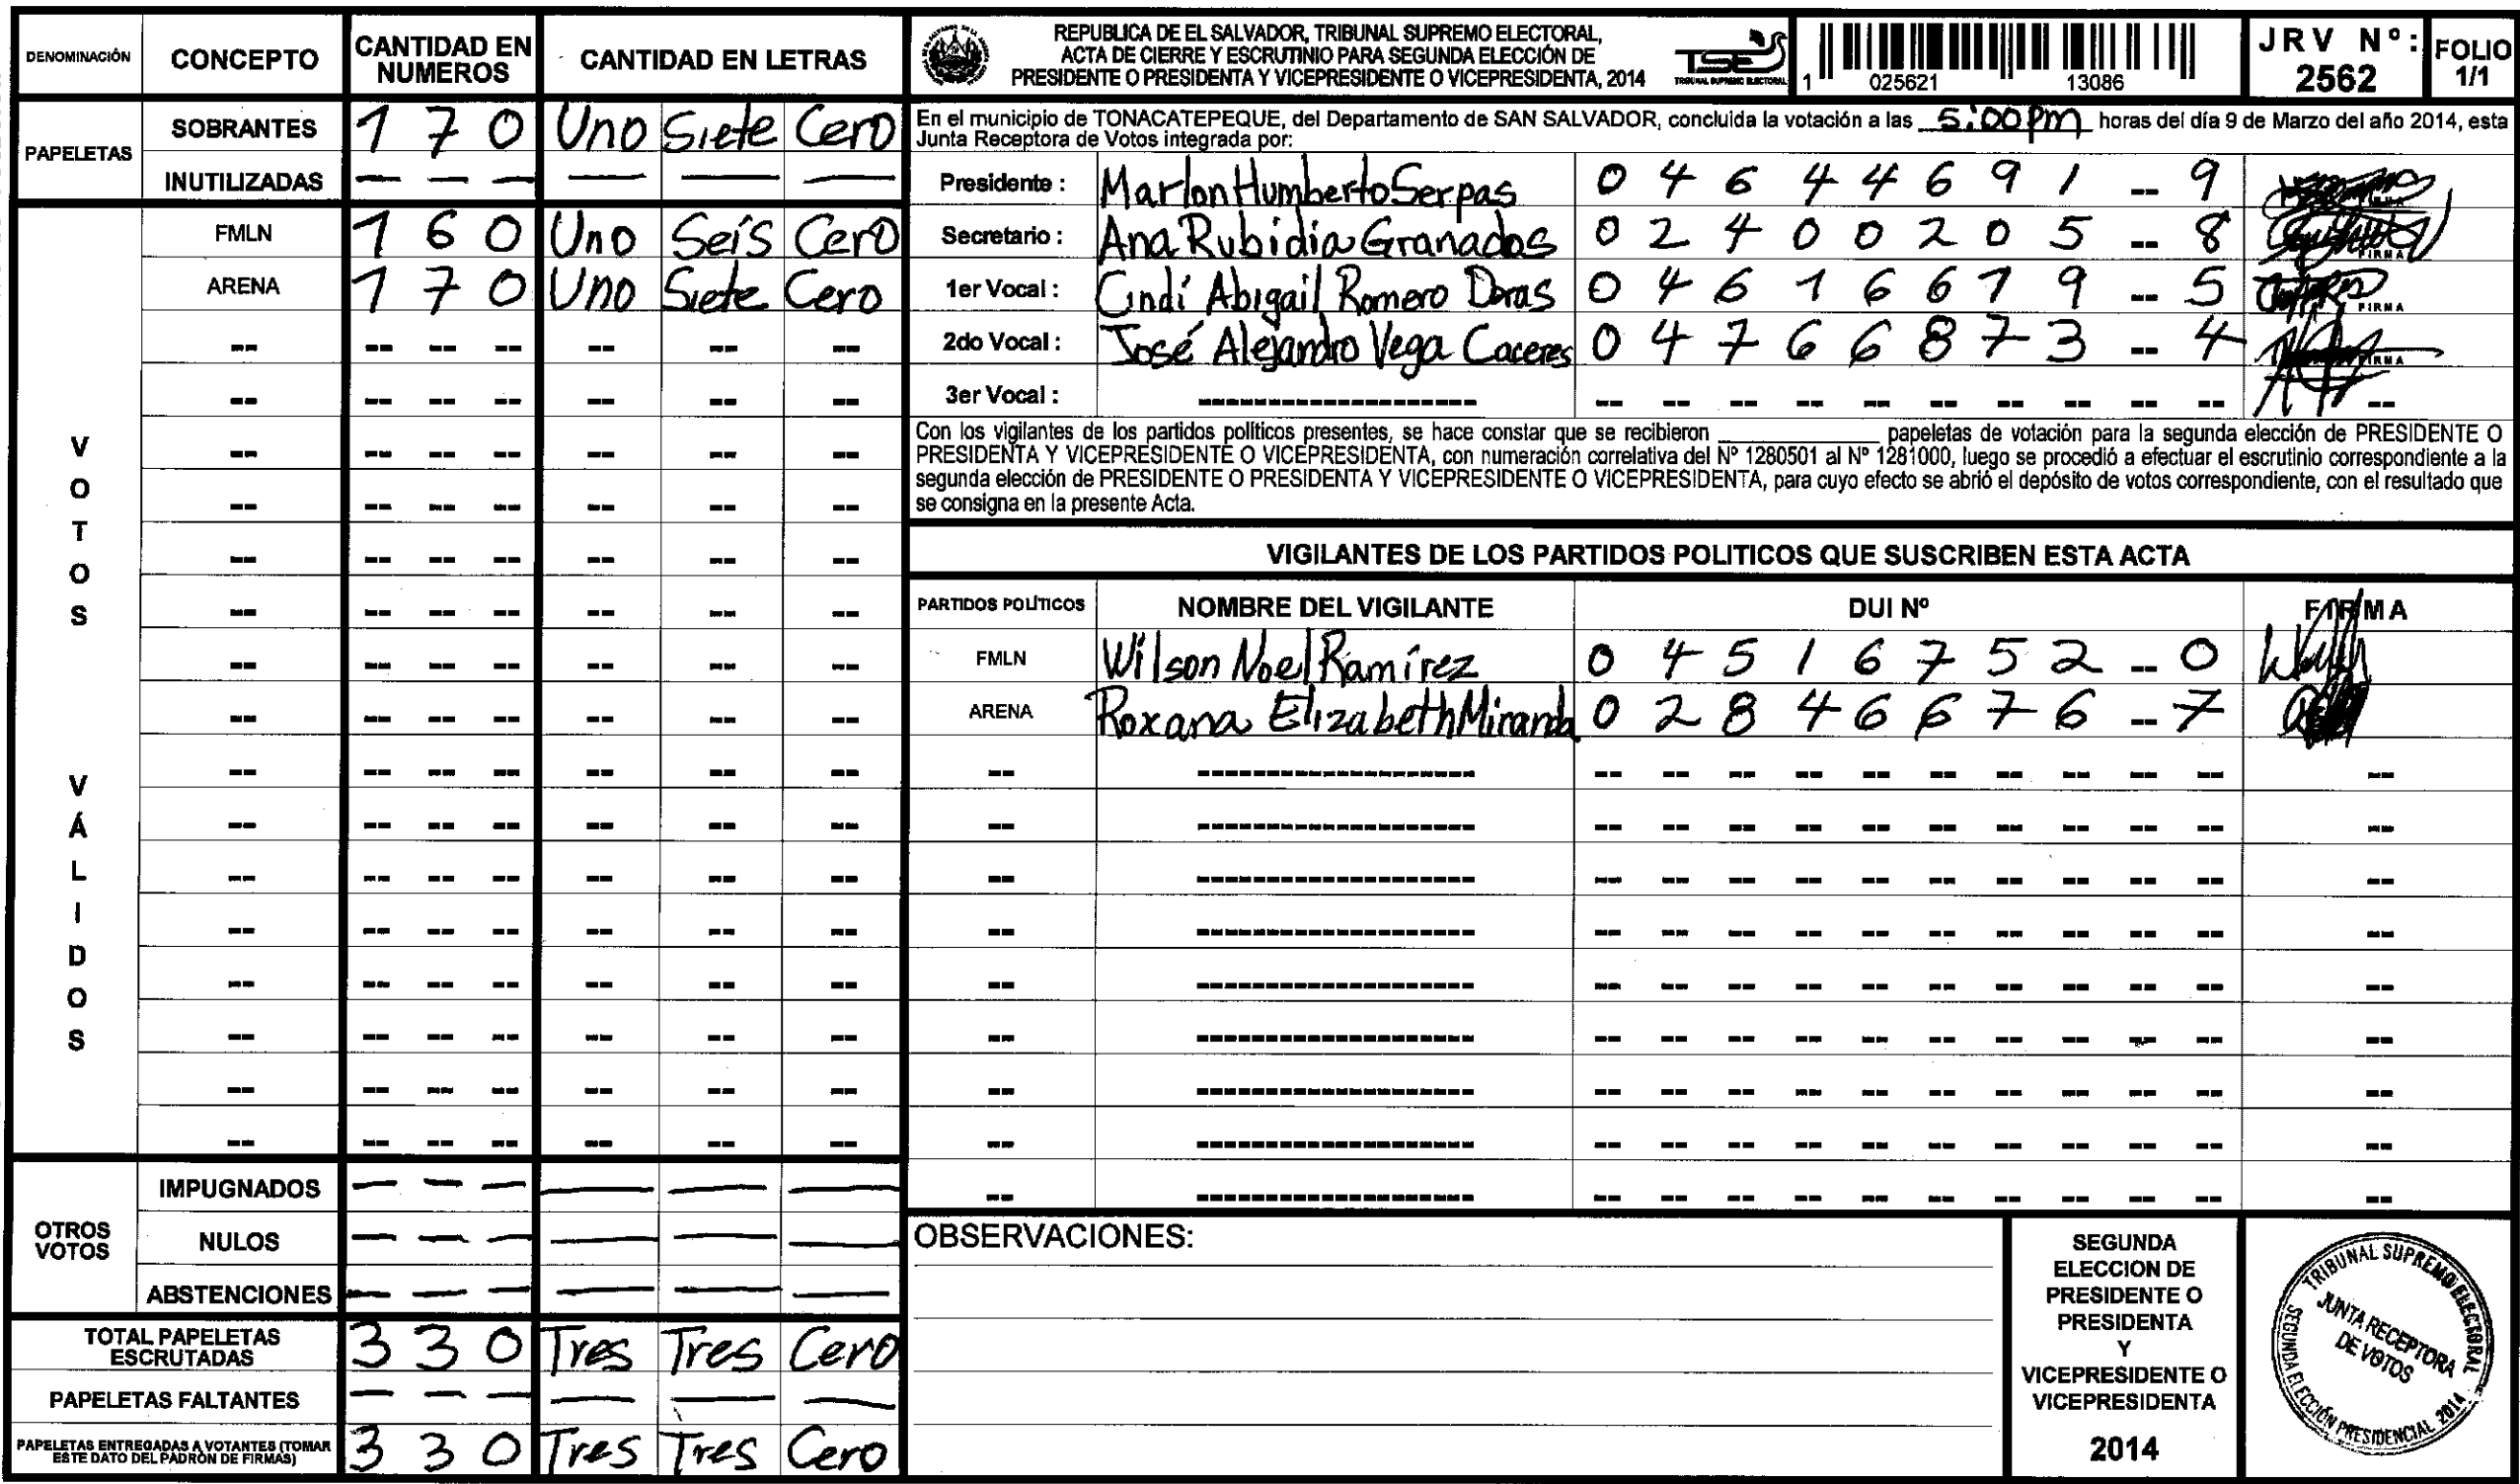 DENOMINACIÓN CONCEPTO CANTIDAD EN NUMEROS CANTIDAD EN LETRAS
PAPELETAS
SOBRANTES 1 7 0 Uno Siete Cero
INUTILIZADAS — — — — — —
VOTOS VÁLIDOS
FMLN 1 6 0 Uno Seis Cero
ARENA 1 7 0 Uno Siete Cero
OTROS VOTOS
IMPUGNADOS — — — — — —
NULOS — — — — — —
ABSTENCIONES — — — — — —
TOTAL PAPELETAS ESCRUTADAS 3 3 0 Tres Tres Cero
PAPELETAS FALTANTES — — — — — —
PAPELETAS ENTREGADAS A VOTANTES (TOMAR ESTE DATO DEL PADRÓN DE FIRMAS) 3 3 0 Tres Tres Cero
REPUBLICA DE EL SALVADOR, TRIBUNAL SUPREMO ELECTORAL,
ACTA DE CIERRE Y ESCRUTINIO PARA SEGUNDA ELECCIÓN DE
PRESIDENTE O PRESIDENTA Y VICEPRESIDENTE O VICEPRESIDENTA, 2014
TSE
TRIBUNAL SUPREMO ELECTORAL
1 025621 13086
JRV Nº: 2562
FOLIO 1/1
En el municipio de TONACATEPEQUE, del Departamento de SAN SALVADOR, concluida la votación a las 5:00 pm horas del día 9 de Marzo del año 2014, esta
Junta Receptora de Votos integrada por:
Presidente : Marlon Humberto Serpas 0 4 6 4 4 6 9 1 -- 9
Secretario : Ana Rubidia Granados 0 2 4 0 0 2 0 5 -- 8 FIRMA
1er Vocal : Cindi Abigail Romero Doras 0 4 6 1 6 6 1 9 -- 5 FIRMA
2do Vocal : José Alejandro Vega Caceres 0 4 7 6 6 8 7 3 -- 4 FIRMA
3er Vocal : ------------------- -- -- -- -- -- -- -- -- -- -- --
Con los vigilantes de los partidos políticos presentes, se hace constar que se recibieron ________ papeletas de votación para la segunda elección de PRESIDENTE O
PRESIDENTA Y VICEPRESIDENTE O VICEPRESIDENTA, con numeración correlativa del Nº 1280501 al Nº 1281000, luego se procedió a efectuar el escrutinio correspondiente a la
segunda elección de PRESIDENTE O PRESIDENTA Y VICEPRESIDENTE O VICEPRESIDENTA, para cuyo efecto se abrió el depósito de votos correspondiente, con el resultado que
se consigna en la presente Acta.
VIGILANTES DE LOS PARTIDOS POLITICOS QUE SUSCRIBEN ESTA ACTA
PARTIDOS POLÍTICOS NOMBRE DEL VIGILANTE DUI Nº FIRMA
FMLN Wilson Noel Ramírez 0 4 5 1 6 7 5 2 -- 0
ARENA Roxana Elizabeth Miranda 0 2 8 4 6 6 7 6 -- 7
OBSERVACIONES:
SEGUNDA
ELECCION DE
PRESIDENTE O
PRESIDENTA
Y
VICEPRESIDENTE O
VICEPRESIDENTA
2014
TRIBUNAL SUPREMO ELECTORAL
JUNTA RECEPTORA
DE VOTOS
SEGUNDA ELECCIÓN PRESIDENCIAL 2014